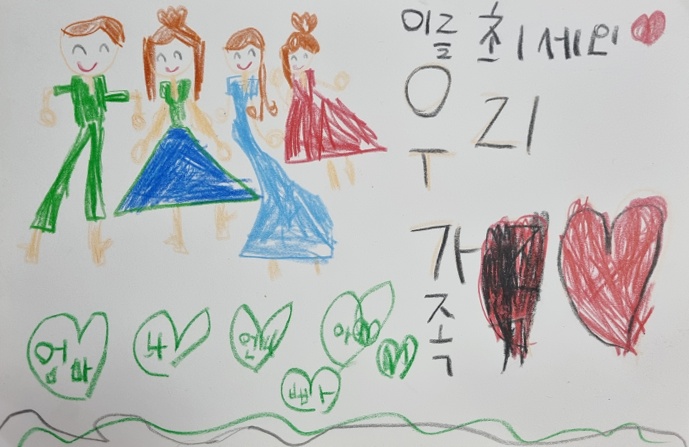 최세인
우리
가족
엄마 나 언니 아
빠